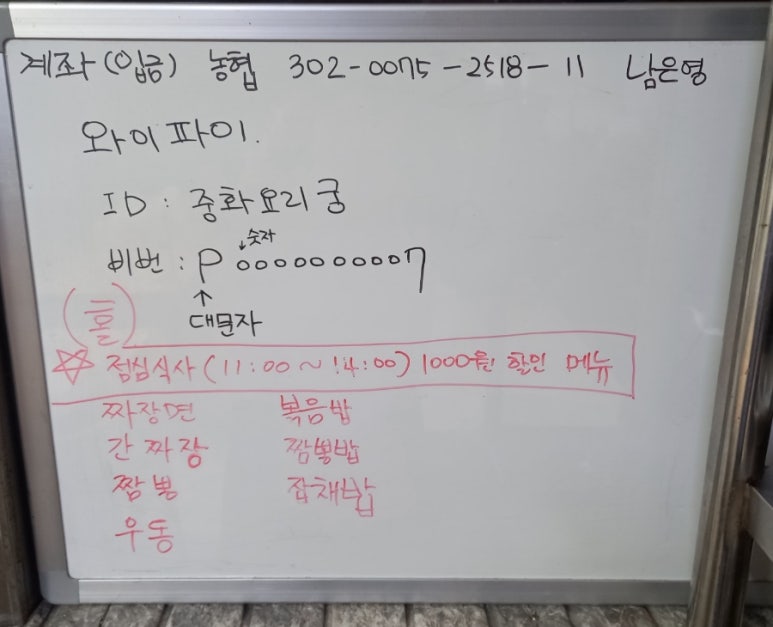 계좌(입금) 농협 302-0075-2518-11 남은영
와이파이.
ID : 중화요리궁
숫자
비번 : P0000000007
대문자
(홀)
점심식사(11:00~14:00) 1000원 할인 메뉴
짜장면 볶음밥
간짜장 짬뽕밥
짬뽕 잡채밥
우동